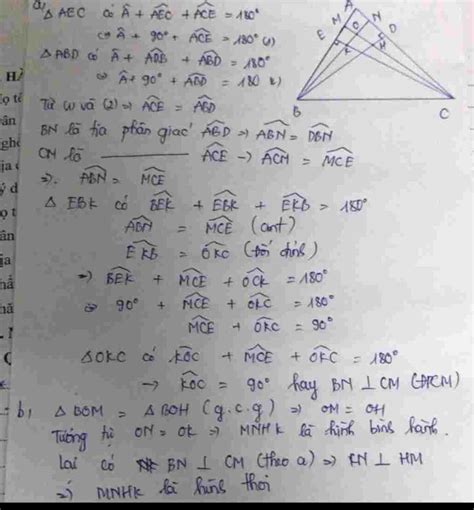 a, △ AEC có Â + AÊC + AĈE = 180°
⇔ Â + 90° + AĈE = 180° (1)
△ ABD có Â + AD̂B + AB̂D = 180°
⇔ Â + 90° + AB̂D = 180 (2)
Từ (1) và (2) ⇒ AĈE = AB̂D
BN là tia phân giác AB̂D ⇒ AB̂N = DB̂N
CM là ———— AĈE → AĈM = MĈE
⇒ AB̂N = MĈE
△ EBK có BÊK + EB̂K + EK̂B = 180°
AB̂N = MĈE (cmt)
EK̂B = OK̂C (đối đỉnh)
⇒ BÊK + MĈE + OĈK = 180°
⇔ 90° + MĈE + OK̂C = 180°
MĈE + OK̂C = 90°
△OKC có KÔC + MĈE + OK̂C = 180°
→ KÔC = 90° hay BN ⊥ CM (ĐPCM)
b, △ BOM = △ BOH (g.c.g) ⇒ OM = OH
Tương tự ON = OK ⇒ MNHK là hình bình hành.
Lại có BN ⊥ CM (theo a) ⇒ KN ⊥ HM
⇒ MNHK là hình thoi
A
M
N
O
E
D
K
H
B
C